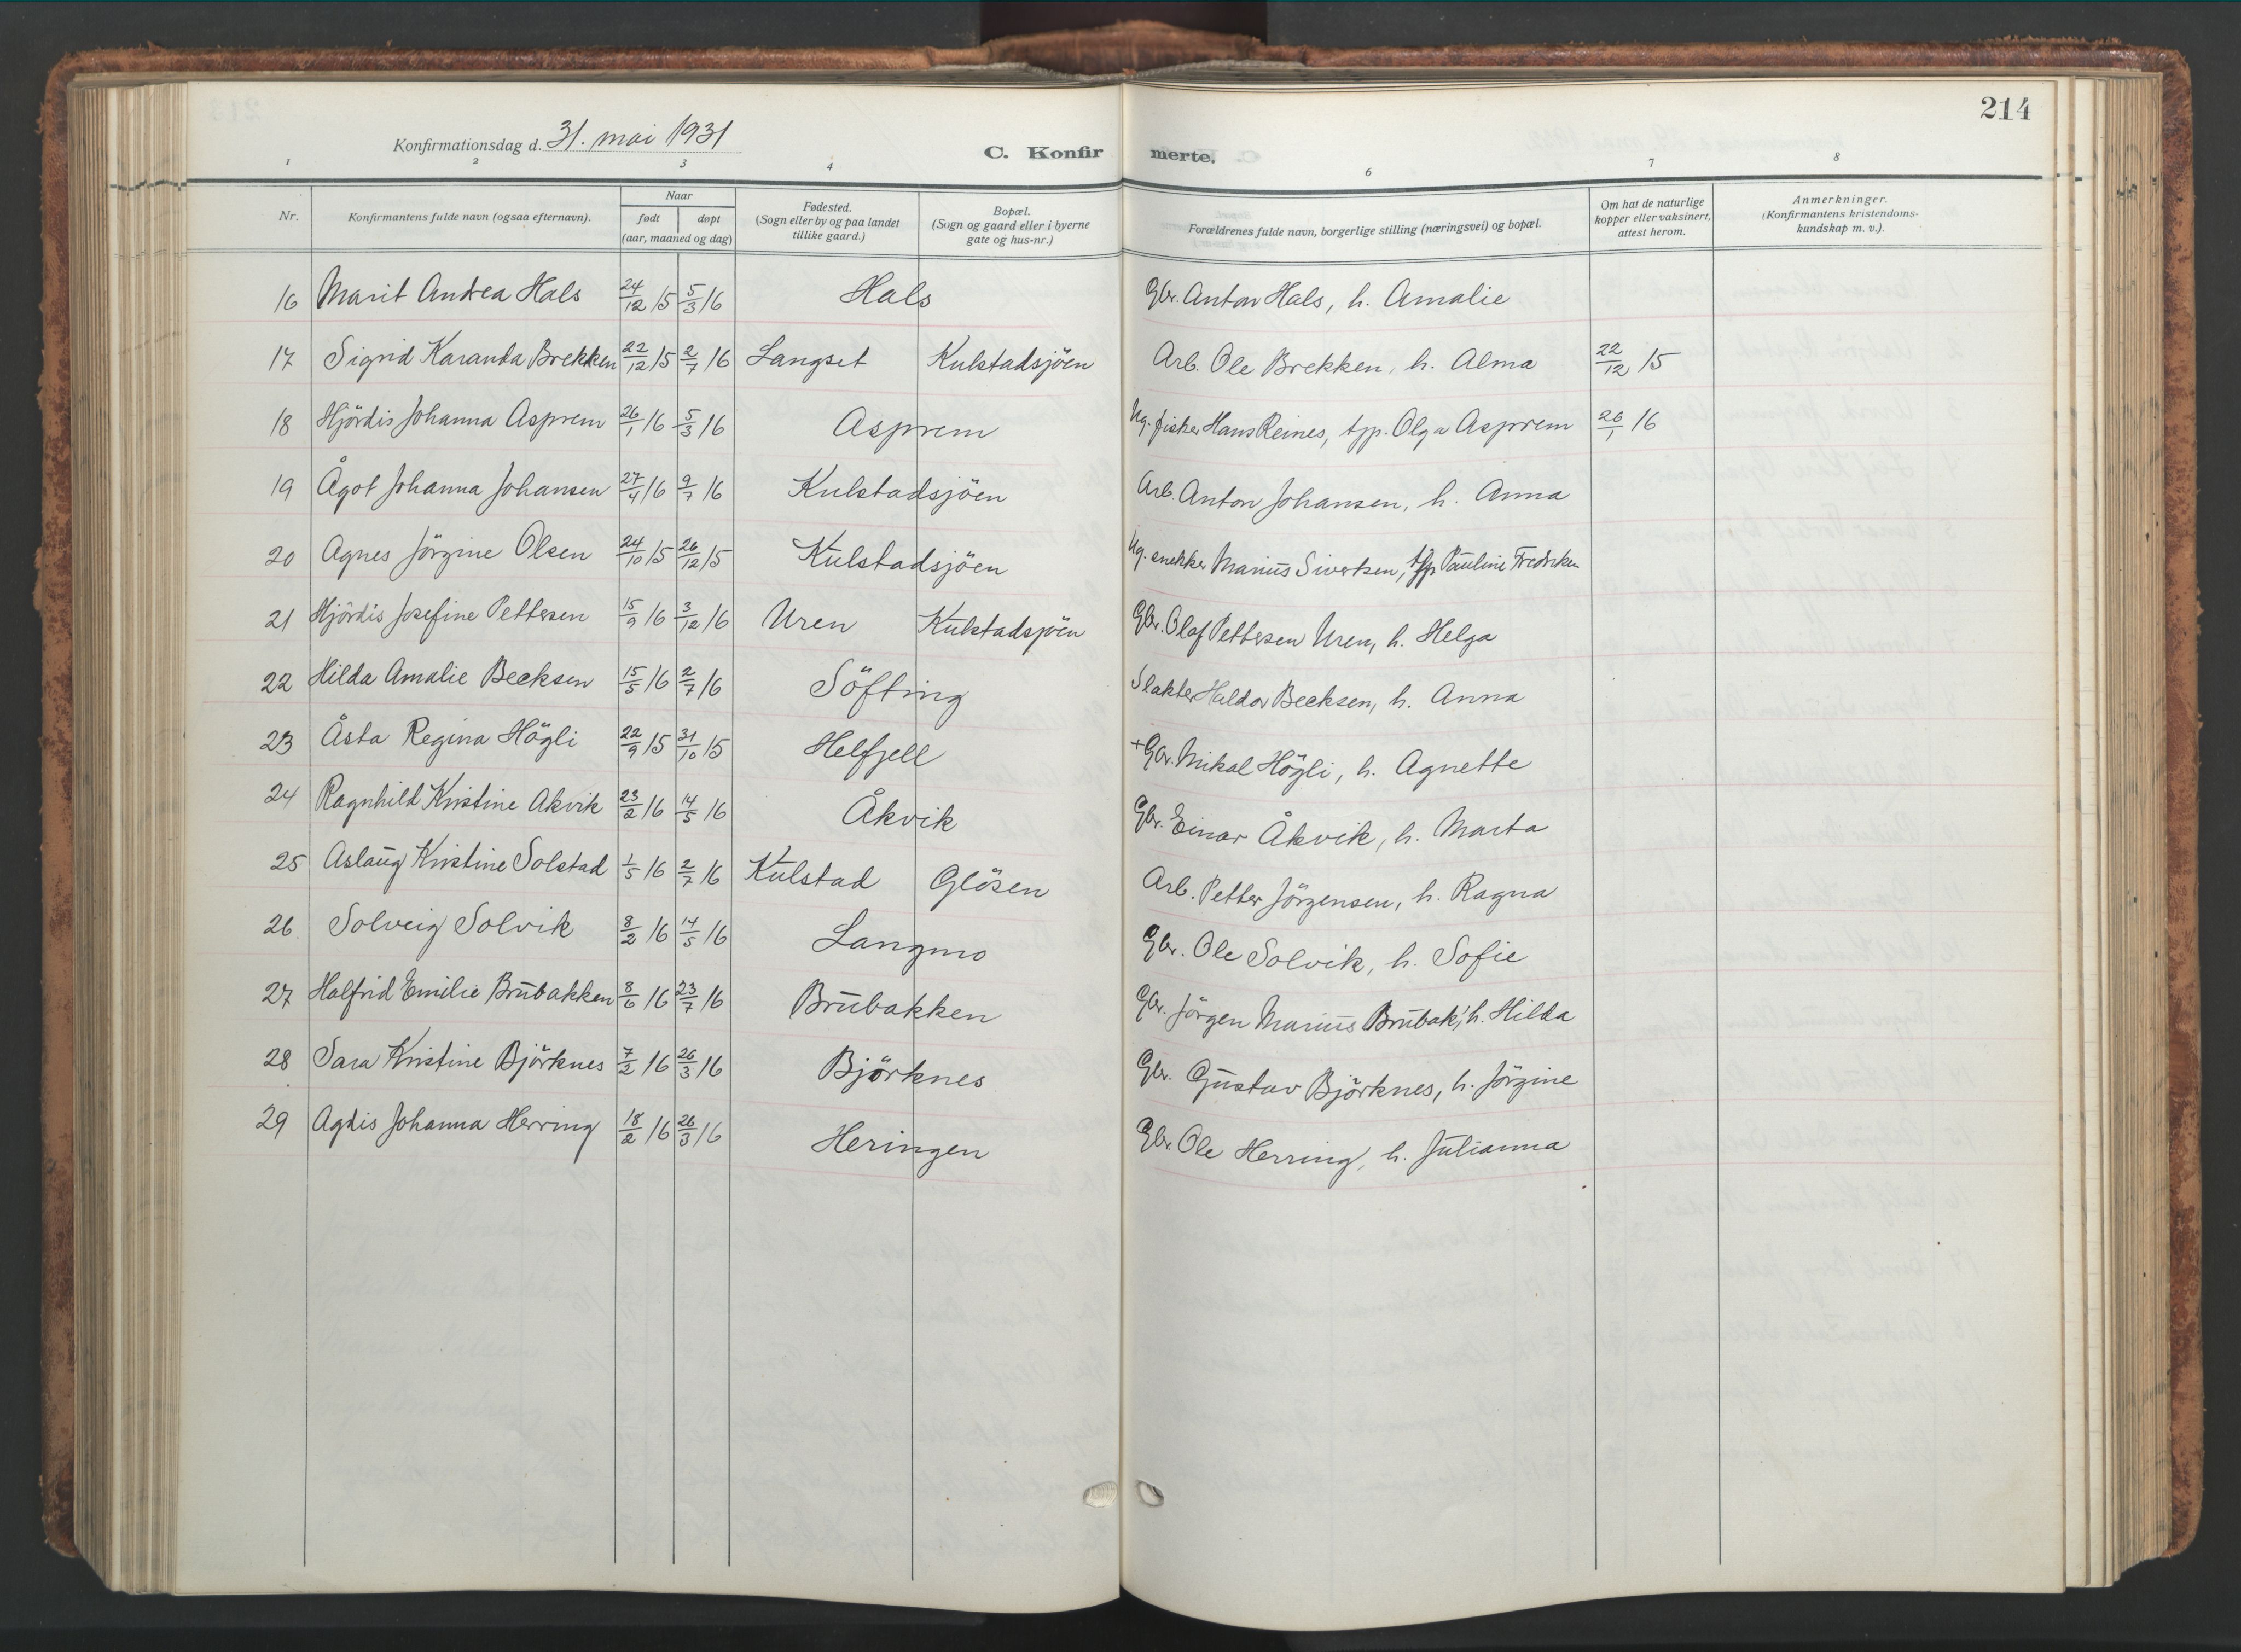 214
Konfirmationsdag d. 31. mai 1931
C. Konfirmerte.
1 2 3 4 6 7 8
Nr. Konfirmantens fulde navn (ogsaa efternavn). Naar født døpt (aar, maaned og dag) Fødested. (Sogn eller by og paa landet tillike gaard.) Bopæl. (Sogn og gaard eller i byerne gate og hus-nr.) Forældrenes fulde navn, borgerlige stilling (næringsvei) og bopæl. Om hat de naturlige kopper eller vaksinert, attest herom. Anmerkninger. (Konfirmantens kristendomskundskap m. v.).
16 Marit Andrea Hals 24/12 15 5/3 16 Hals Gbr. Anton Hals, h. Amalie
17 Sigrid Karanda Brekken 22/12 15 2/7 16 Langset Kulstadsjöen Arb. Ole Brekken, h. Alma 22/12 15
18 Hjördis Johanna Asprem 26/1 16 5/3 16 Asprem Ug. fisker Hans Reines, tjp. Olga Asprem 26/1 16
19 Ågot Johanna Johansen 27/4 16 9/7 16 Kulstadsjöen Arb. Anton Johansen, h. Anna
20 Agnes Jörgine Olsen 24/10 15 26/12 15 Kulstadsjöen Ug. snekker Marius Sivertsen, tjp Pauline Fredriksen
21 Hjördis Josefine Pettersen 15/9 16 3/12 16 Uren Kulstadsjöen Gbr. Olaf Pettersen Uren, h. Helga
22 Hilda Amalie Becksen 15/5 16 2/7 16 Söfting Slakter Haldor Becksen, h. Anna
23 Åsta Regina Högli 22/9 15 31/10 15 Helfjell +Gbr. Mikal Högli, h. Agnette
24 Ragnhild Kristine Akvik 23/2 16 14/5 16 Åkvik Gbr. Einar Åkvik, h. Marta
25 Aslaug Kristine Solstad 1/5 16 2/7 16 Kulstad Glösen Arb. Petter Jörgensen, h. Ragna
26 Solveig Solvik 8/2 16 14/5 16 Langmo Gbr. Ole Solvik, h. Sofie
27 Halfrid Emilie Brubakken 8/6 16 23/7 16 Brubakken Gbr. Jörgen Marius Brubak', h. Hilda
28 Sara Kristine Björknes 7/2 16 26/3 16 Björknes Gbr. Gustav Björknes, h. Jörgine
29 Agdis Johanna Herring 18/2 16 26/3 16 Heringen Gbr. Ole Herring, h. Julianna